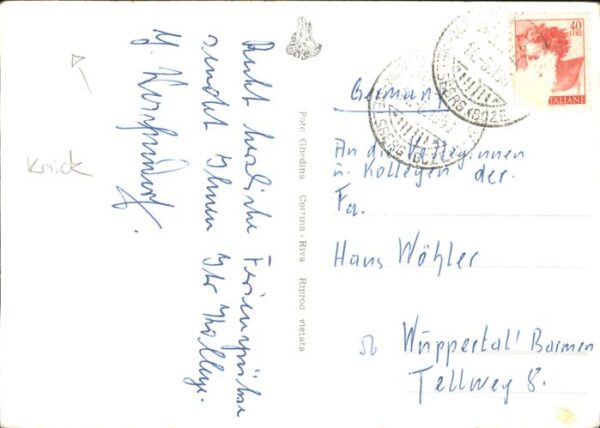 Recht herzliche Feriengrüße
sendet Ihnen Ihr Kollege.
H.
Knick
Foto Ghedina Cortina - Riva Riprod vietata
40
LIRE
ITALIANE
Germany
An die Kolleginnen
u. Kollegen der
Fa.
Hans Wöhler
56 Wuppertal Barmen
Tellweg 8.